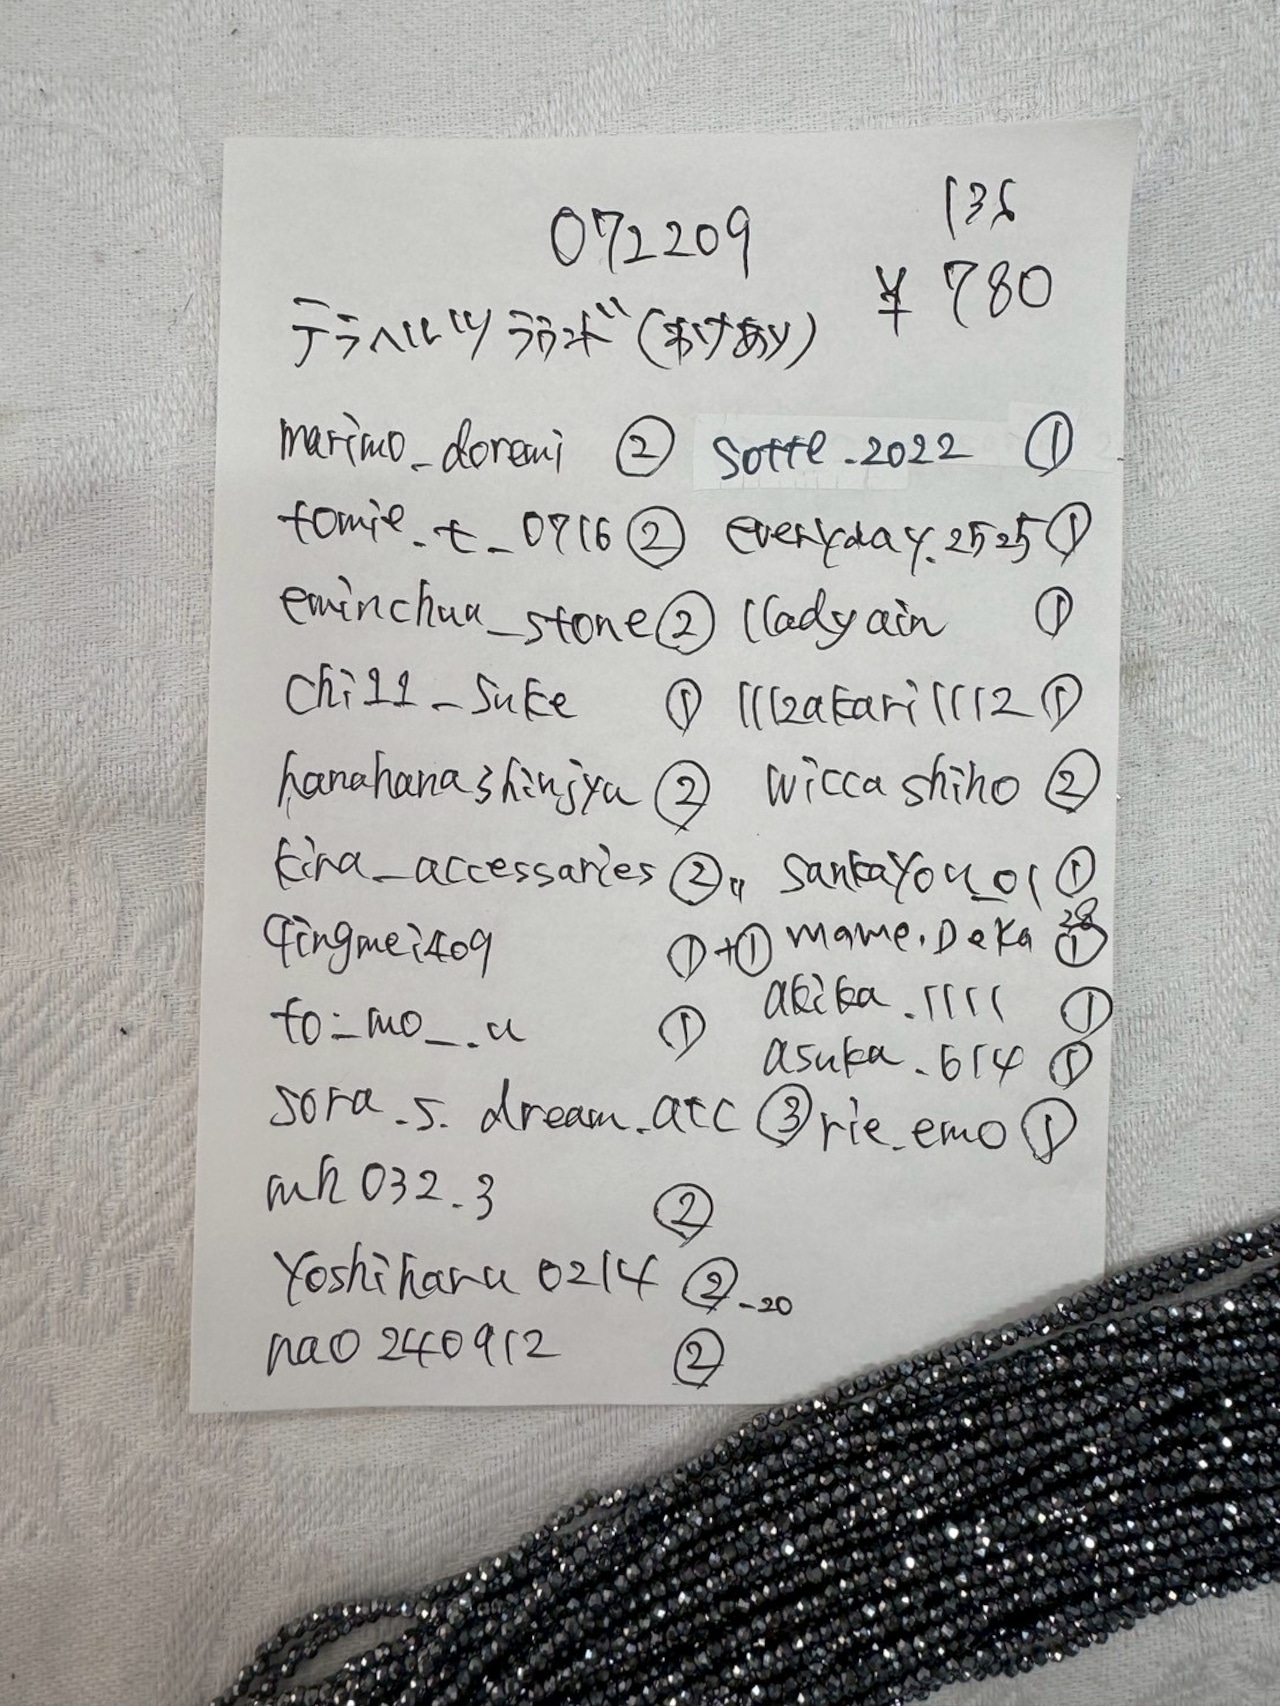 072209
136
¥780
テラヘルツ ラウンド (わけあり)
marimo_doremi ②
tomie_t_0716 ②
eminchua_stone ②
chi11_suke ①
hanahanashinjyu ②
kira_accessaries ②
qingmei409 ①+①
to_mo__.u ①
sora.s.dream.atc ③
mh032.3 ②
Yoshiharu0214 ② -20
nao240912 ②
sotte.2022 ①
everyday.2525 ①
lladyain ①
1112akari11112 ①
wiccashiho ②
sankayou_01 ①
mame.Deka28 ①
akika.1111 ①
asuka.614 ①
rie_emo ①